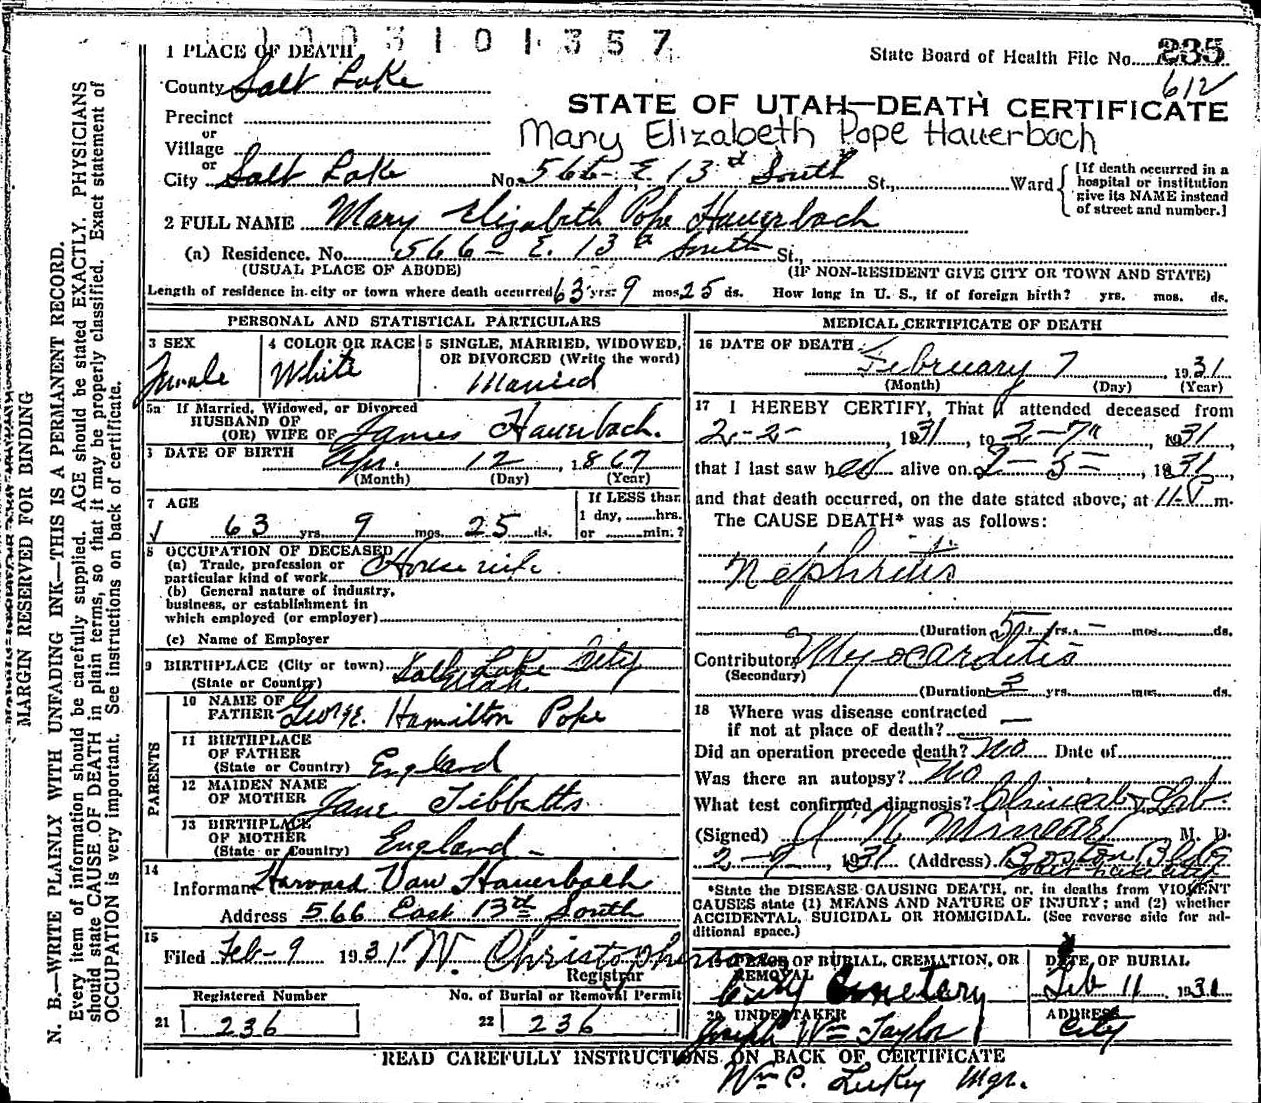 1003101357
1 PLACE OF DEATH
State Board of Health File No. 235
County Salt Lake
612
STATE OF UTAH—DEATH CERTIFICATE
Precinct
Mary Elizabeth Pope Hauerbach
or
Village
or
City Salt Lake No. 566- E. 13th South St., Ward
[If death occurred in a hospital or institution give its NAME instead of street and number.]
2 FULL NAME Mary Elizabeth Pope Hauerbach
(a) Residence. No. 566- E. 13th South St.,
(USUAL PLACE OF ABODE) (IF NON-RESIDENT GIVE CITY OR TOWN AND STATE)
Length of residence in city or town where death occurred 63 yrs. 9 mos. 25 ds. How long in U. S., if of foreign birth? yrs. mos. ds.
PERSONAL AND STATISTICAL PARTICULARS
3 SEX
Female
4 COLOR OR RACE
White
5 SINGLE, MARRIED, WIDOWED,
OR DIVORCED (Write the word)
Married
5a If Married, Widowed, or Divorced
HUSBAND OF
(OR) WIFE OF James Hauerbach.
DATE OF BIRTH Apr. 12, 1867
(Month) (Day) (Year)
7 AGE
63 yrs. 9 mos. 25 ds.
If LESS than
1 day, hrs.
or min.?
8 OCCUPATION OF DECEASED
(a) Trade, profession or
particular kind of work Housewife.
(b) General nature of industry,
business, or establishment in
which employed (or employer)
(c) Name of Employer
9 BIRTHPLACE (City or town) Salt Lake City
(State or Country) Utah
PARENTS
10 NAME OF
FATHER George Hamilton Pope
11 BIRTHPLACE
OF FATHER
(State or Country) England
12 MAIDEN NAME
OF MOTHER Jane Tibbetts
13 BIRTHPLACE
OF MOTHER
(State or Country) England
14
Informant Harvard Van Hauerbach
Address 566 East 13th South
15
Filed Feb-9 1931 W. Christopherson
Registrar
Registered Number
21 236
No. of Burial or Removal Permit
22 236
MEDICAL CERTIFICATE OF DEATH
16 DATE OF DEATH
February 7 1931
(Month) (Day) (Year)
17 I HEREBY CERTIFY, That I attended deceased from
2-2-, 1931, to 2-7", 1931,
that I last saw her alive on 2-5-, 1931,
and that death occurred, on the date stated above, at 11-P m.
The CAUSE DEATH* was as follows:
Nephritis
(Duration 5 yrs. - mos. ds.
Contributory Myocarditis
(Secondary)
(Duration yrs. mos. ds.
18 Where was disease contracted
if not at place of death?
Did an operation precede death? No Date of
Was there an autopsy? No
What test confirmed diagnosis? Clinical & Lab.
(Signed) M. D.
1931 (Address) Boston Bldg
Salt Lake City
*State the DISEASE CAUSING DEATH, or, in deaths from VIOLENT
CAUSES state (1) MEANS AND NATURE OF INJURY; and (2) whether
ACCIDENTAL, SUICIDAL OR HOMICIDAL. (See reverse side for ad-
ditional space.)
PLACE OF BURIAL, CREMATION, OR
REMOVAL
City Cemetery
DATE OF BURIAL
Feb 11 1931
20 UNDERTAKER
Joseph Wm Taylor
ADDRESS
City
READ CAREFULLY INSTRUCTIONS ON BACK OF CERTIFICATE
Wm C. Mgr.
MARGIN RESERVED FOR BINDING
N. B.—WRITE PLAINLY WITH UNFADING INK—THIS IS A PERMANENT RECORD.
Every item of information should be carefully supplied. AGE should be stated EXACTLY. PHYSICIANS
should state CAUSE OF DEATH in plain terms, so that it may be properly classified. Exact statement of
OCCUPATION is very important. See instructions on back of certificate.